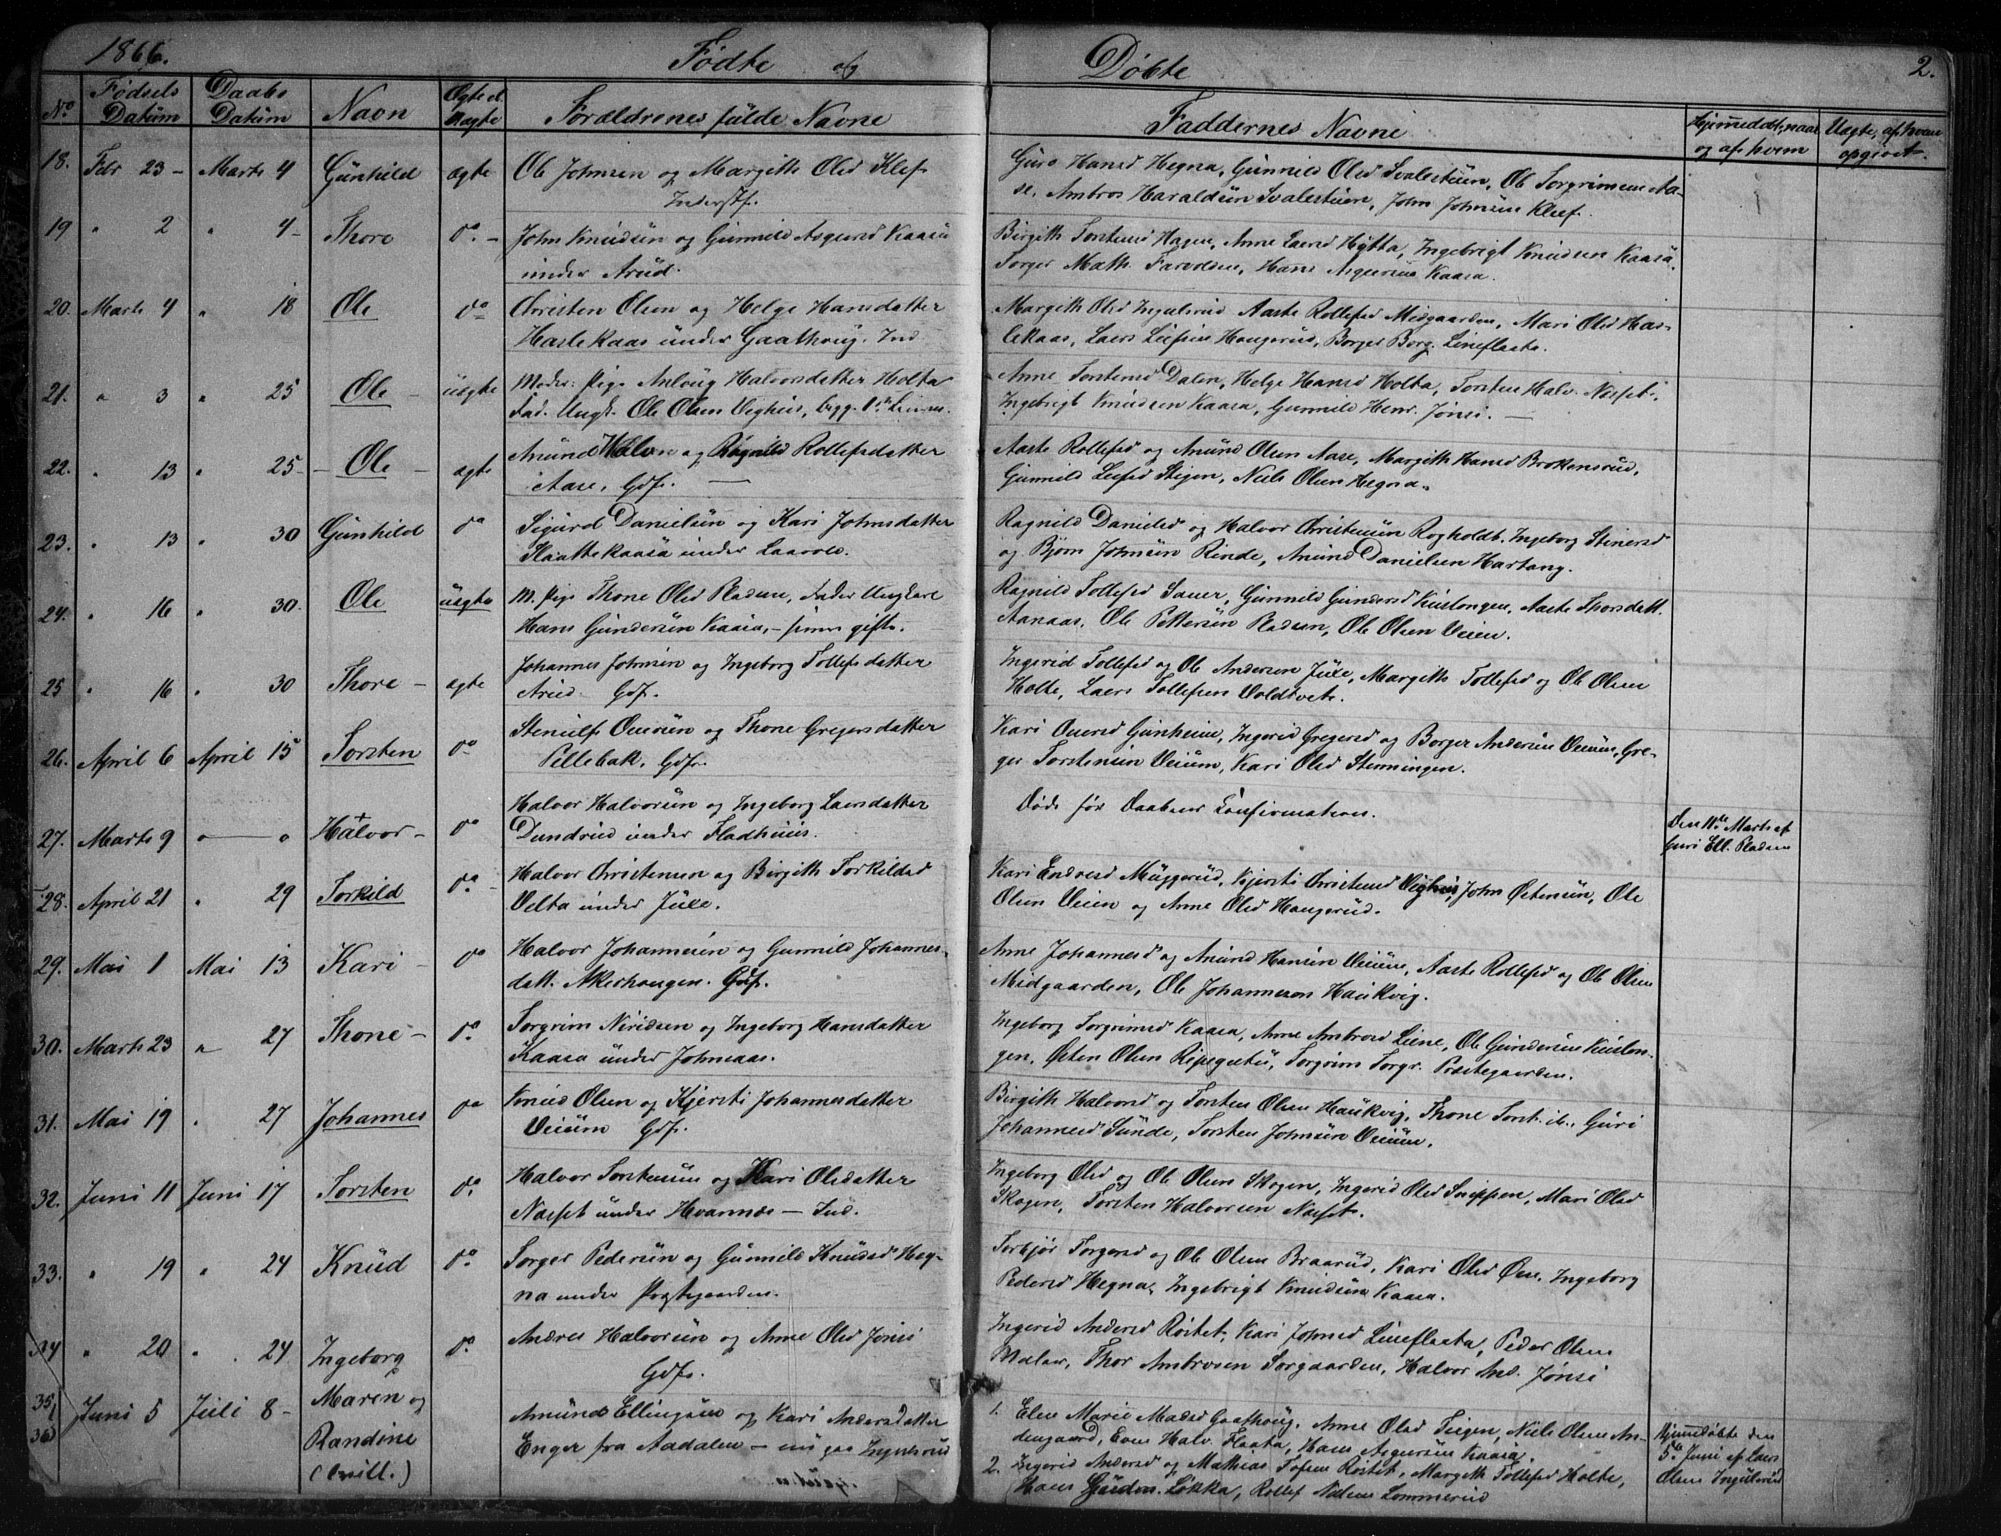 1866.
Fødte og
Døbte
2.
No
Fødsels Datum
Daabs Datum
Navn
Ægte el. uægte
Forældrenes fulde Navne
Faddernes Navne
Hjemmedøbt, naar og af hvem
Uægte, af hvem opgivet.
18. Febr 23 – Marts 4 Gunhild ægte Ole Johnsen og Margith Olsd Klef
Inderst.
Guro Hansd Hegna, Gunnild Olsd Svalestuen, Ole Torgrimsen Aa-
se, Ambros Haraldsen Svalestuen, John Johnsen Klef.
19 " 2 " 4 – Thore do – John Knudsen og Gunnild Asgersd Kaasa
under Arud.
Birgith Torstensd Hagen, Anne Larsd Hytta, Ingebrigt Knudsen Kaasa,
Torger Math. Farvolsen, Hans Asgersen Kaasa.
20. Marts 4 " 18 Ole do Christen Olsen og Helge Hansdatter
Haslekaas under Gaathoug. Ind
Margith Olsd Ingulsrud, Aaste Rollefsd Midgaarden, Mari Olsd Has-
lekaas, Laers Leifsen Haugerud, Borger Borg. Lineflaata.
21. " 3 " 25 Ole – uægte Moder: Pige Anlaug Halvorsdatter Holta
Fad. Ungk. Ole Olsen Veghus, begg. 1ste Leierm.
Anne Torstensd Dalen, Helge Hansd Holta, Torsten Halv. Næset,
Ingebrigt Knudsen Kaasa, Gunnild Henr. Jønsi. –
22. " 13 " 25 – Ole – ægte Amund Olsen og Ragnild Rollefsdatter
Aase, Gdf. –
Aaste Rollefsd og Amund Olsen Aase, Margith Hansd Brokkensrud,
Gunnild Leifsd Stigen, Niels Olsen Hegna.
23. " 13 " 30 Gunhild do Sigurd Danielsen og Kari Johnsdatter
Slaattekaasa under Laavole.
Ragnild Danielsd og Halvor Christensen Rogholdt, Ingeborg Steinersd
og Bjørn Johnsen Rinde, Amund Danielsen Hartang.
24. " 16 " 30. Ole uægte M. Pige Thone Olsd Pladsen, Fader Ungkarl
Hans Gundersen Kaasa, –
Ragnild Tollefsd Sauer, Gunnild Gundersd Kuslongen, Aaste Thorsdatt.
Aanaas, Ole Pettersen Pladsen, Ole Olsen Veien.
25 " 16 " 30 Thore – ægte Johannes Johnsen og Ingeborg Tollefsdatter
Arud. Gdf.
Ingerid Tollefsd og Ole Andersen Jule, Margith Tollefsd og Ole Olsen
Holte, Laers Tollefsen Voldtvet.
26. April 6 April 15 Torsten do Steinulf Ouersen og Thone Gregersdatter
Pillebak, Gdf.
Kari Ouersd Gunheim, Ingerid Gregersd og Borger Andersen Veium, Gre-
ger Torstensen Veium, Kari Olsd Stenningen.
27. Marts 9 " – " Halvor – do Halvor Halvorsen og Ingeborg Laersdatter
Dundrud under Fladhuus.
Døde før Daabens Confirmation.
Den 11te Marts af
Guri Ell. Pladsen
28. April 21 " 29 Torkild do – Halvor Christensen og Birgith Torkildsd
Velta under Jule.
Kari Endresd Muggerud, Kjersti Christensd Veghus, John Østensen, Ole
Olsen Veien og Anne Olsd Haugerud.
29. Mai 1 Mai 13 Kari – do Halvor Johannesen og Gunnild Johannes-
datt. Akerhaugen. Gdf.
Anne Johannesd og Amund Hansen Veium, Aaste Rollefsd og Ole Olsen
Midgaarden, Ole Johannesen Haukvig.
30. Marts 23 " 27 Thone – do Torgrim Niridsen og Ingeborg Hansdatter
Kaasa under Johnsaas.
Ingeborg Torgrimsd Kaasa, Anne Ambrosd Liene, Ole Gundersen Kuslon-
gen, Østen Olsen Ripegutu, Torgrim Torgr. Præstegaarden.
31. Mai 19 " 27 Johannes do Knud Olsen og Kjersti Johannesdatter
Veium Gdf.
Birgith Halvorsd og Torsten Olsen Haukvig, Thone Torst. ib., Guri
Johannesd Sunde, Torsten Johnsen Veium.
32. Juni 11 Juni 17 Torsten do Halvor Torstensen og Kari Olsdatter
Næset under Hvamnæs – Ind.
Ingeborg Olsd og Ole Olsen Skogen, Ingerid Olsd Snippen, Mari Olsd
Skogen, Torsten Halvorsen Næset.
33. " 19 " 24 Knud do Torger Pedersen og Gunnild Knudsd Heg-
na under Præstegaarden.
Torbjør Torgersd og Ole Olsen Braarud, Kari Olsd Øen, Ingeborg
Pedersd Hegna, Ingebrigt Knudsen Kaasa.
34 " 20 " 24 Ingeborg do Andres Halvorsen og Anne Olsd Jønsi
Gdf.
Ingerid Andersd Røstet, Kari Johnsd Lineflaata, Peder Olsen
Moler, Thor Ambrosen Torgaarden, Halvor And. Jønsi
35/36 Juni 5 Juli 8 – Maren og
Randine
(Tvill.)
Amund Ellingsen og Kari Andersdatter
Enger fra Aadalen – nu paa Ingulsrud
1. Elen Marie Madsd Gaathoug, Anne Olsd Teigen, Niels Olsen An-
dersgaard, Even Halv. Flaata, Hans Asgersen Kaasa.
2. Ingerid Andersd og Mathias Tofsen Røstet, Margith Tollefsd Holte,
Hans Løkka, Rollef Nilsen Lommerud
Hjemmedøbte den
5te Juni af Laers
Olsen Ingulsrud